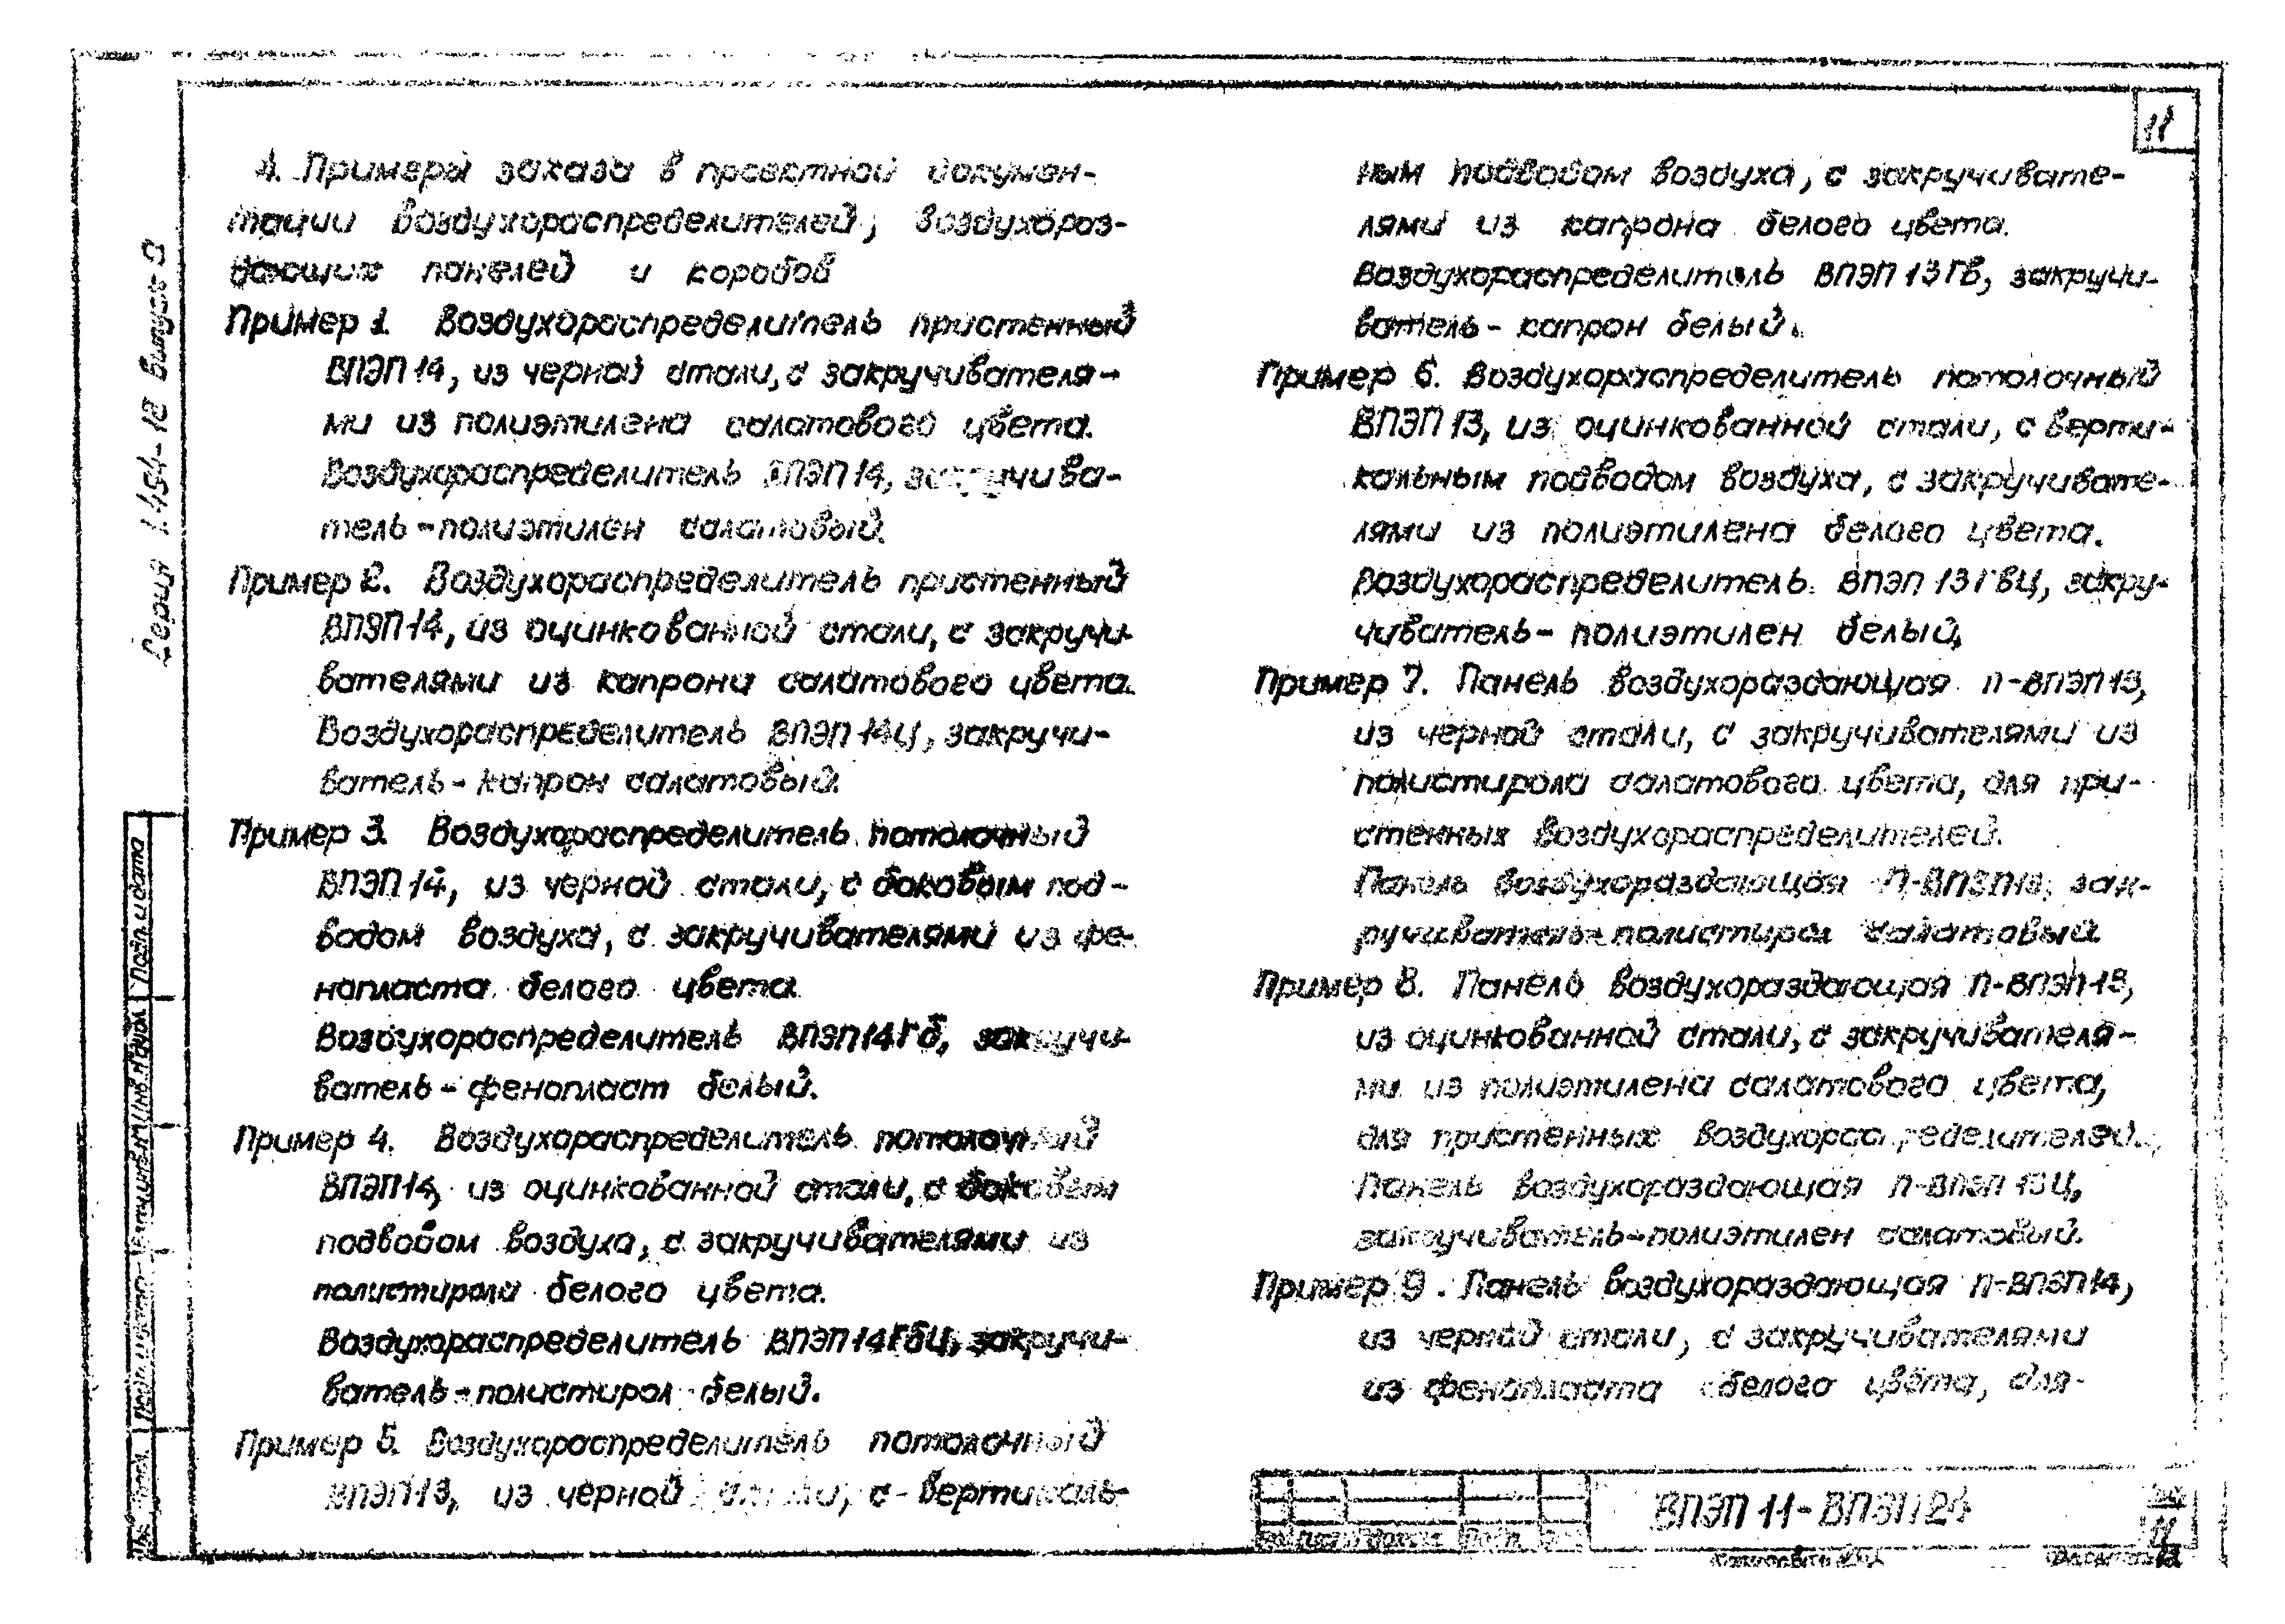 11
4. Примеры заказа в проектной докумен-
тации воздухораспределителей, воздухораз-
дающих панелей и коробов
Пример 1. Воздухораспределитель пристенный
ВПЭП 14, из черной стали, с закручивателя-
ми из полиэтилена салатового цвета.
Воздухораспределитель ВПЭП 14, закручива-
тель-полиэтилен салатовый.
Пример 2. Воздухораспределитель пристенный
ВПЭП 14, из оцинкованной стали, с закручи-
вателями из капрона салатового цвета.
Воздухораспределитель ВПЭП 14Ц, закручи-
ватель-капрон салатовый.
Пример 3. Воздухораспределитель потолочный
ВПЭП 14, из черной стали, с боковым под-
водом воздуха, с закручивателями из фе-
нопласта белого цвета.
Воздухораспределитель ВПЭП14Гб, закручи-
ватель-фенопласт белый.
Пример 4. Воздухораспределитель потолочный
ВПЭП14, из оцинкованной стали, с боковым
подводом воздуха, с закручивателями из
полистирола белого цвета.
Воздухораспределитель ВПЭП14ГбЦ, закручи-
ватель-полистирол белый.
Пример 5. Воздухораспределитель потолочный
ВПЭП13, из черной стали, с вертикаль-
ным подводом воздуха, с закручивате-
лями из капрона белого цвета.
Воздухораспределитель ВПЭП 13Гв, закручи-
ватель-капрон белый.
Пример 6. Воздухораспределитель потолочный
ВПЭП 13, из оцинкованной стали, с верти-
кальным подводом воздуха, с закручивате-
лями из полиэтилена белого цвета.
Воздухораспределитель ВПЭП 13ГвЦ, закру-
чиватель-полиэтилен белый.
Пример 7. Панель воздухораздающая П-ВПЭП13,
из черной стали, с закручивателями из
полистирола салатового цвета, для при-
стенных воздухораспределителей.
Панель воздухораздающая П-ВПЭП13, зак-
ручиватель-полистирол салатовый
Пример 8. Панель воздухораздающая П-ВПЭП-13,
из оцинкованной стали, с закручивателя-
ми из полиэтилена салатового цвета,
для пристенных воздухораспределителей.
Панель воздухораздающая П-ВПЭП 13Ц,
закручиватель-полиэтилен салатовый.
Пример 9. Панель воздухораздающая П-ВПЭП14,
из черной стали, с закручивателями
из фенопласта белого цвета, для
Серия 1.454-12 Выпуск
Подп. и дата
ВПЭП 11-ВПЭП24